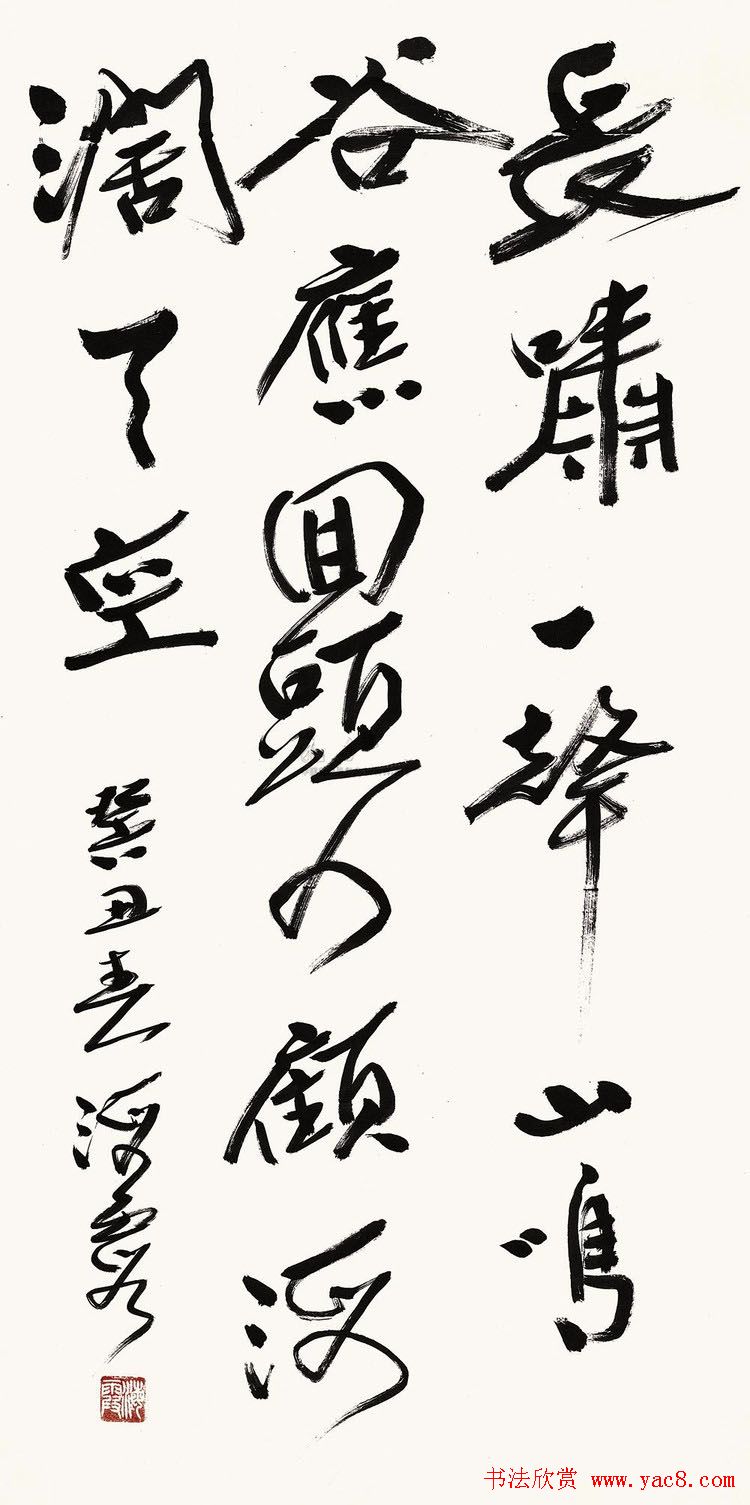 長嘯一聲山鳴
谷應回頭四顧海
濶天空 癸丑春 海霞
海霞
书法欣赏 www.yac8.com